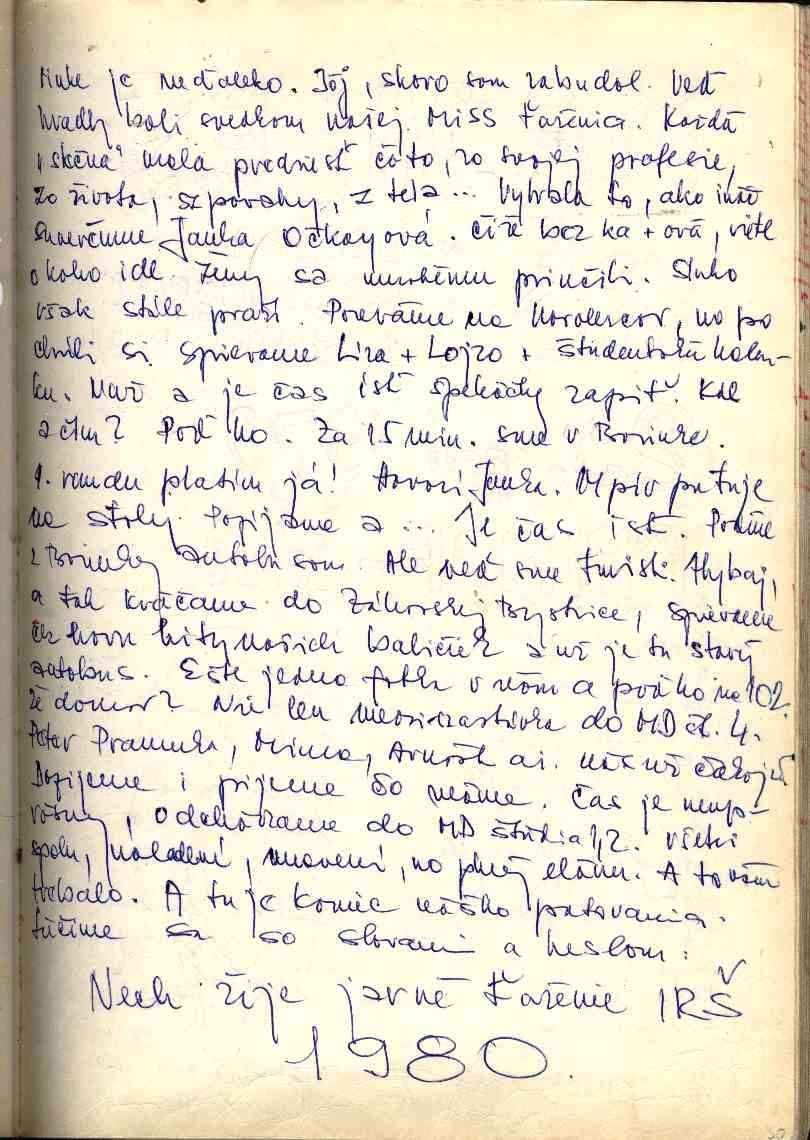 je neďaleko. Jój, skoro som zabudol. Veď
hrady boli svedkom našej Miss Ťaženia. Každá
mala predniesť čosi, zo svojej profesie,
zo života, z povahy, z tela ... Vyhrala to, ako ináč
Janka Očkayová. Čiže bez ka + ová, viete
o koho ide. Ženy sa k prinútili. Slnko
však stále praží. Pozeráme na no po
chvíli si spievame Líza + Lojzo + študentskú
Už a je čas ísť špekáčky zapiť. Kde
a čím? Poď ho. Za 15 min. sme v Borinke.
1. rundu platím já! Hovorí Janka. piv putuje
na stoly. Popíjame a ... Je čas ísť. Poďme
z Borinky autobusom. Ale veď sme turisti. Hybaj,
a tak kráčame do Záhorskej Bystrice, spievame
hity našich babičiek a už je tu starý
autobus. Ešte jedna fotka v ňom a poďho na 102.
Že domov? Nie len medzizastávka do MD č. 4.
Peter Pramuka, Arnošt a i. nás už čakajú.
Dopijeme i pijeme čo máme. Čas je neúp-
rosný, odchádzame do MD štúdia 1,2. všetci
spolu, náladení, unavení, no plný elánu. A to nám
trebalo. A tu je koniec nášho putovania.
Lúčime sa so slovami a heslom:
Nech žije jarné ťaženie IRŠ
1980.